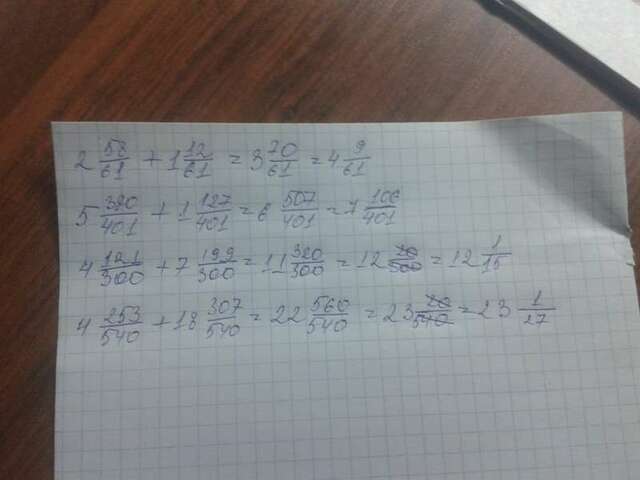 2 58/61 + 1 12/61 = 3 70/61 = 4 9/61
5 380/401 + 1 127/401 = 6 507/401 = 7 106/401
4 121/300 + 7 199/300 = 11 320/300 = 12 20/300 = 12 1/15
4 253/540 + 18 307/540 = 22 560/540 = 23 20/540 = 23 1/27